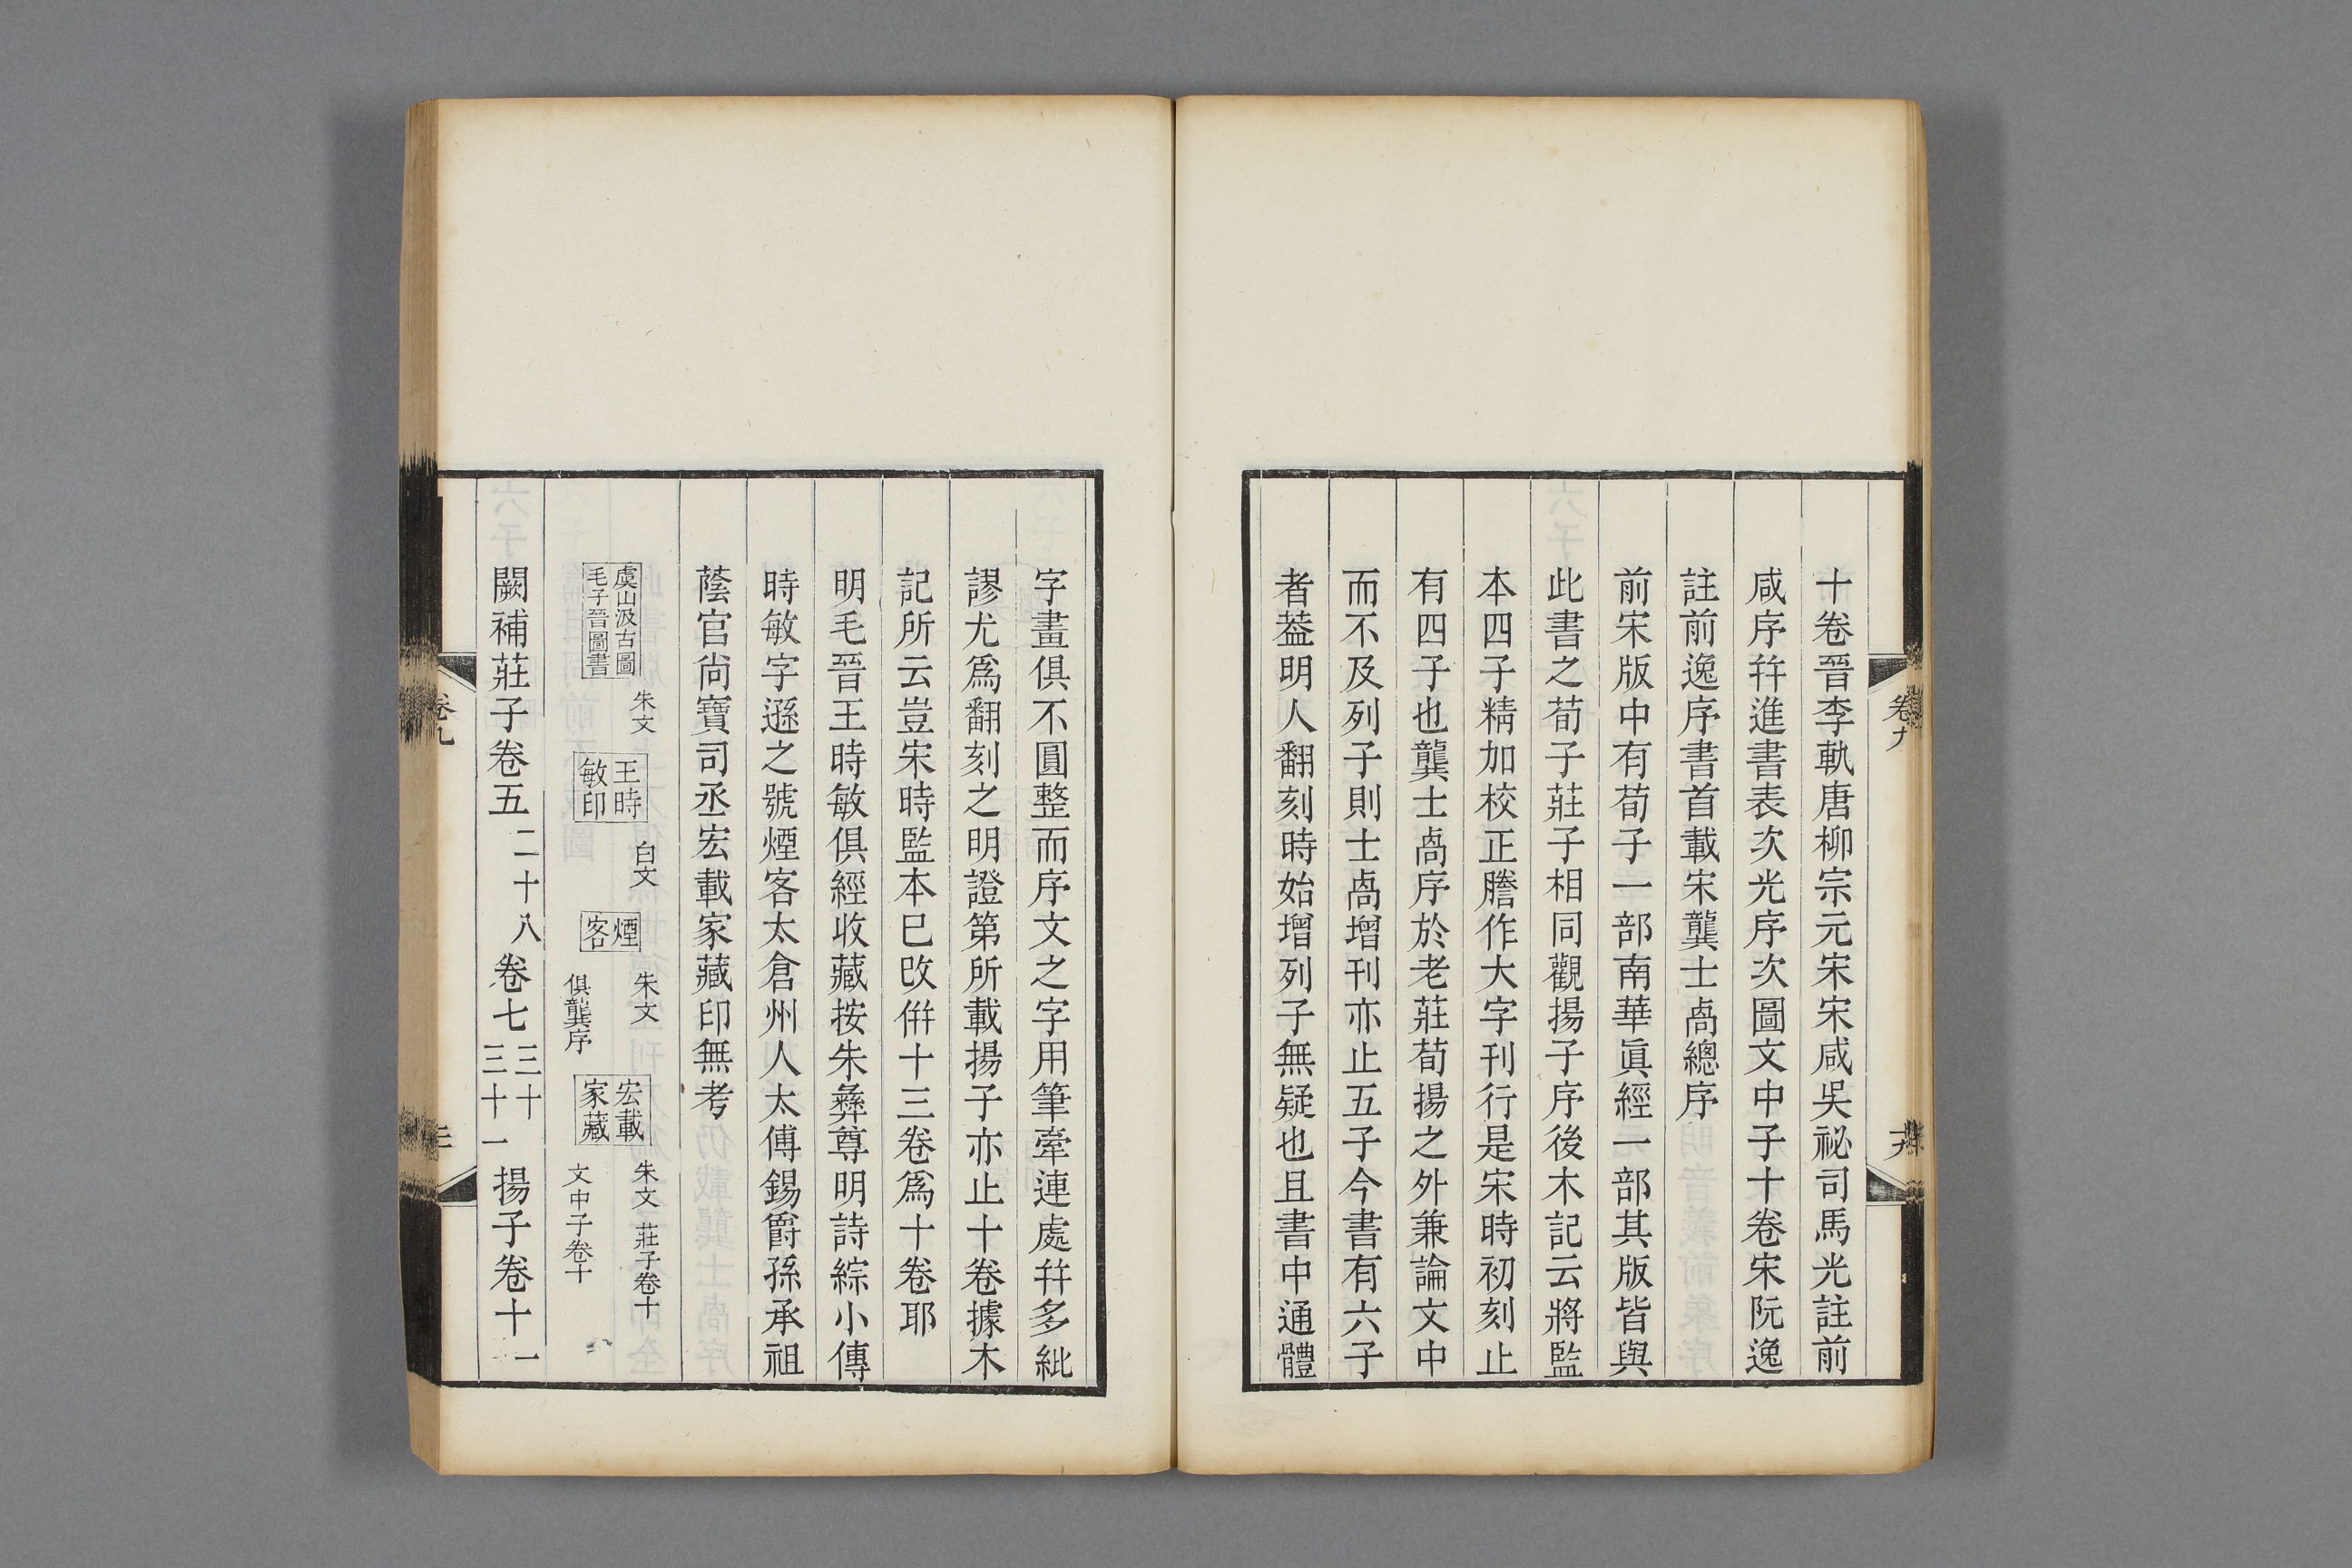 十卷晉李軌唐柳宗元宋宋咸吳祕司馬光註前
咸序幷進書表次光序次圖文中子十卷宋阮逸
註前逸序書首載宋龔士卨總序
前宋版中有荀子一部南華眞經一部其版皆與
此書之荀子莊子相同觀揚子序後木記云將監
本四子精加校正謄作大字刊行是宋時初刻止
有四子也龔士卨序於老莊荀揚之外兼論文中
而不及列子則士卨增刊亦止五子今書有六子
者葢明人翻刻時始增列子無疑也且書中通體
字畫俱不圓整而序文之字用筆牽連處幷多紕
謬尤爲翻刻之明證第所載揚子亦止十卷據木
記所云豈宋時監本巳改倂十三卷爲十卷耶
明毛晉王時敏俱經收藏按朱彝尊明詩綜小傳
時敏字遜之號煙客太倉州人太傅錫爵孫承祖
蔭官尙寶司丞宏載家藏印無考
虞山汲古圖
毛子晉圖書
朱文
王時
敏印
白文
煙
客
朱文
俱龔序
宏載
家藏
朱文 莊子卷十
文中子卷十
闕補莊子卷五
二十八
卷七
三十
三十一
揚子卷十
一
卷九
卷九